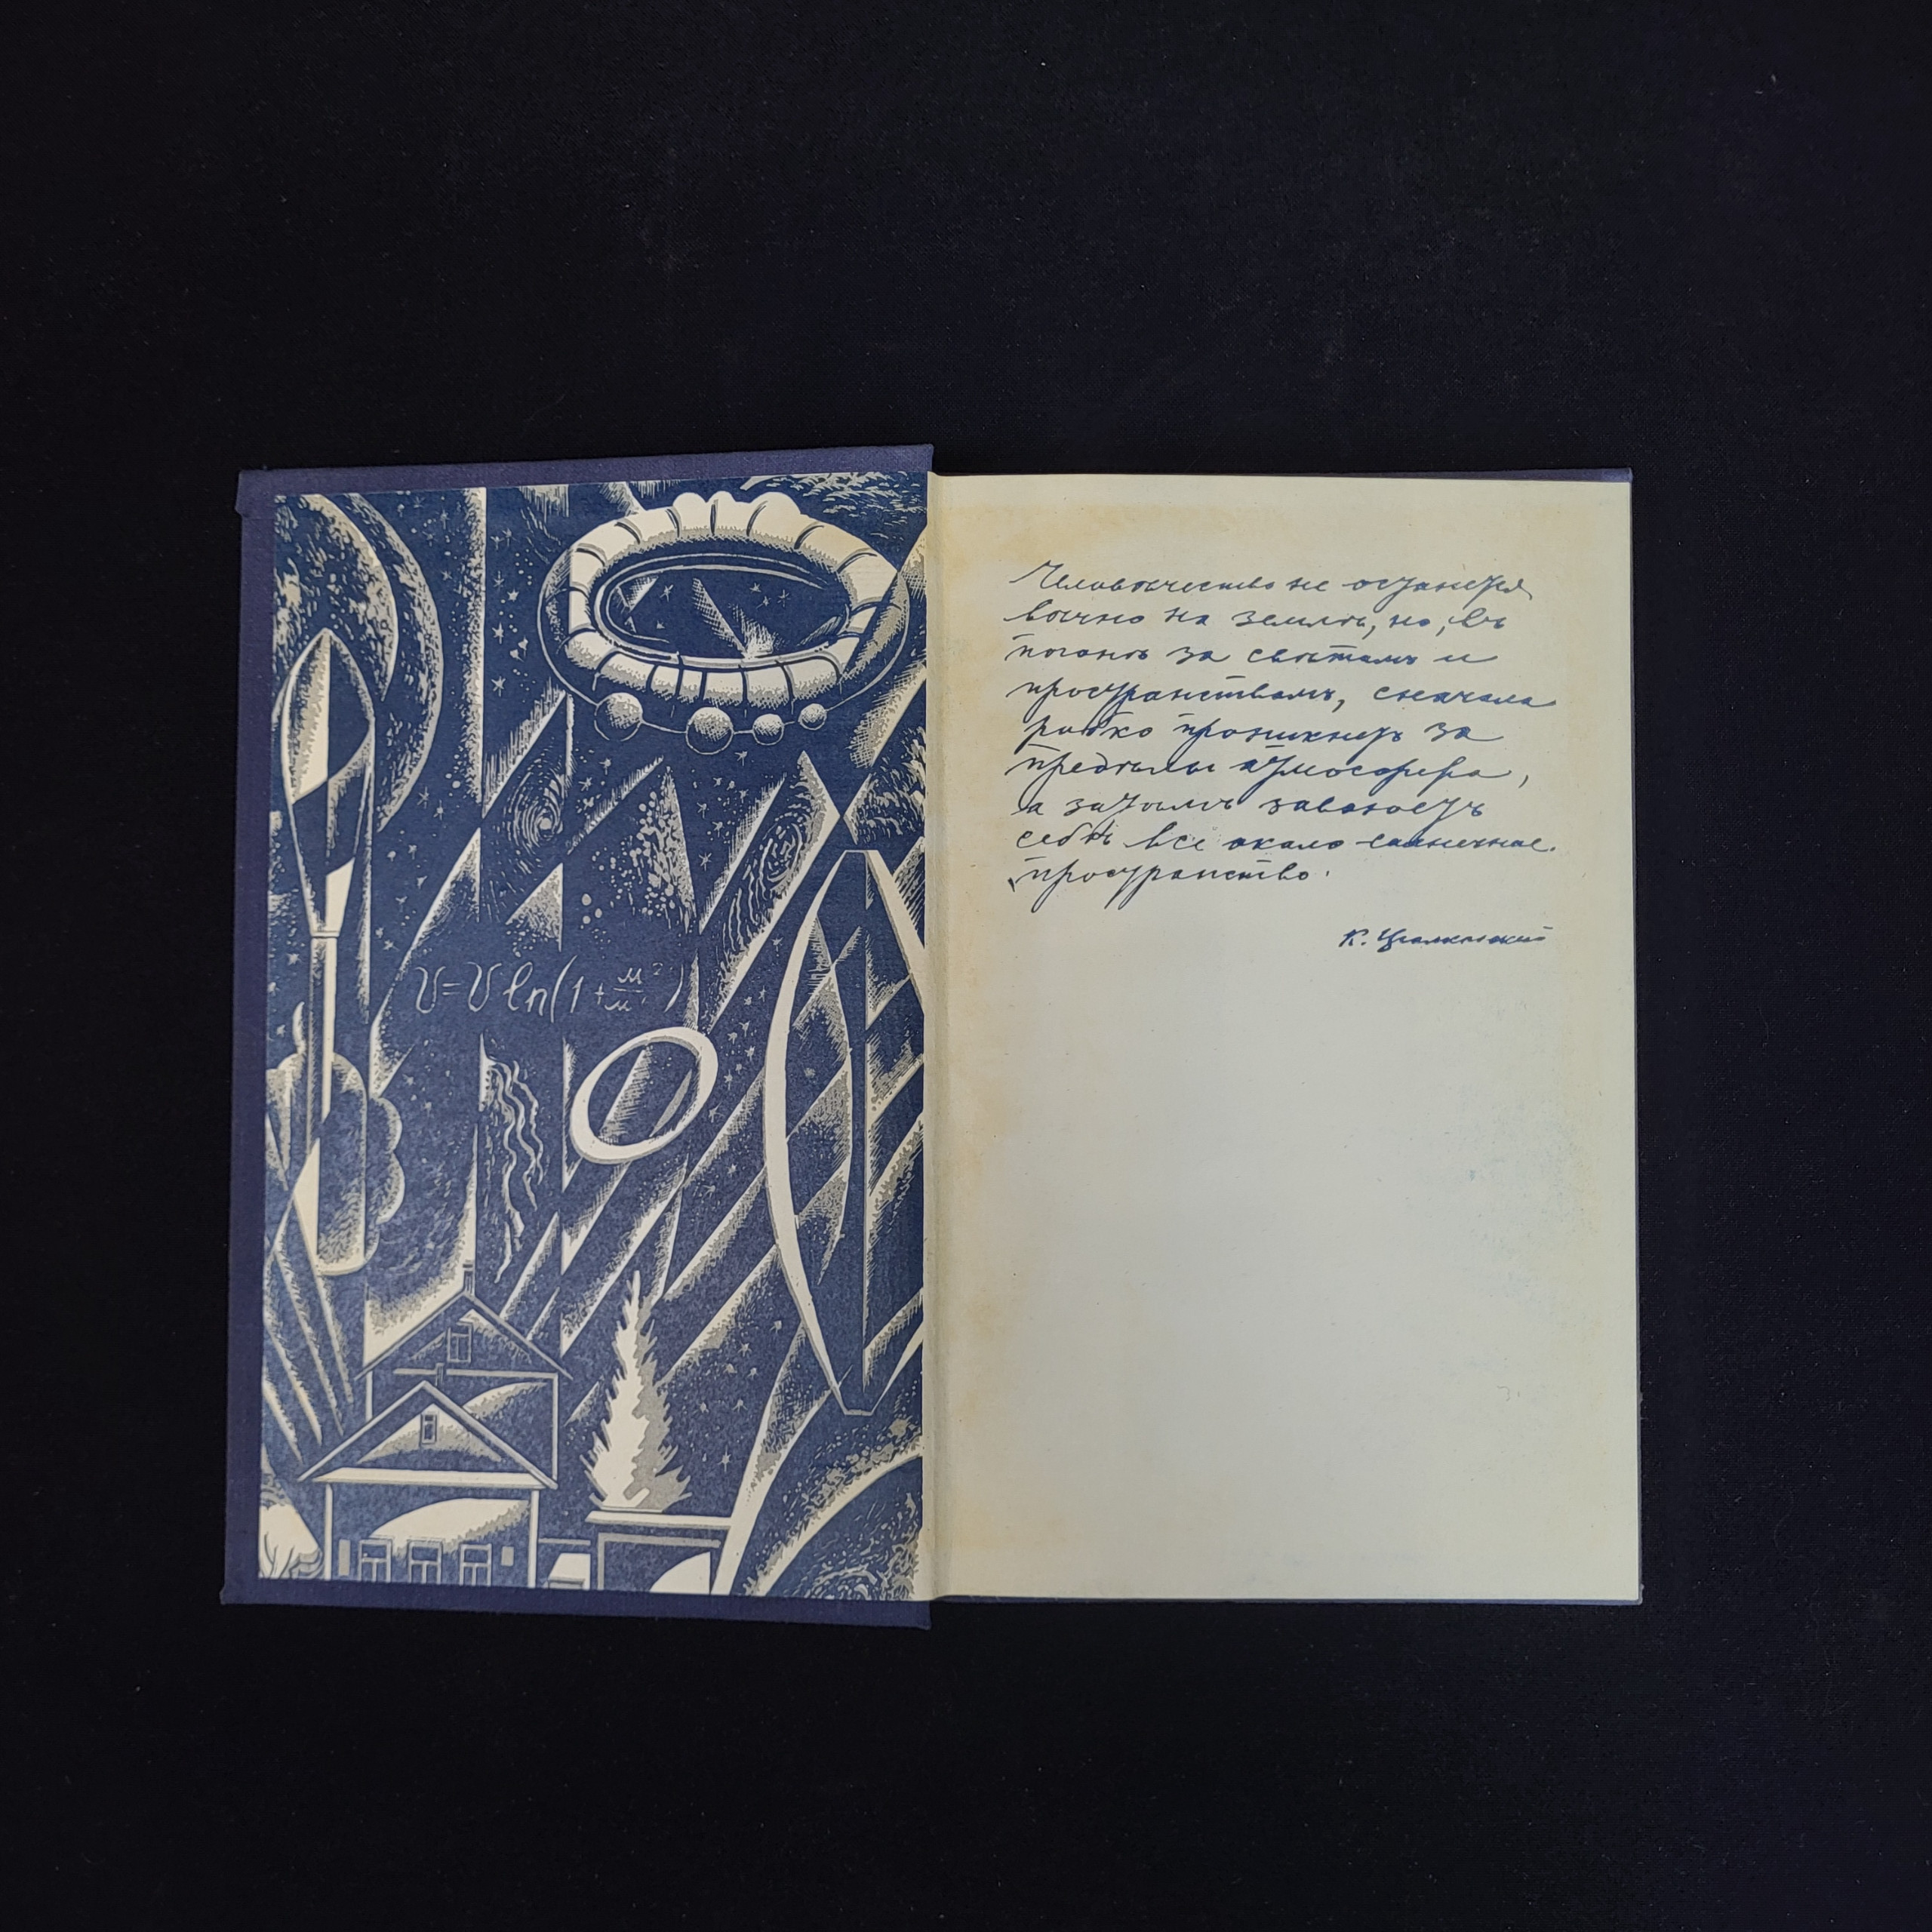 V=V ln(1+м²/м¹)
Человѣчество не останется
вѣчно на землѣ, но, въ
погонѣ за свѣтомъ и
пространствомъ, сначала
робко проникнетъ за
предѣлы атмосферы,
а затѣмъ завоюетъ
себѣ все около-солнечное
пространство.
К. Циолковский